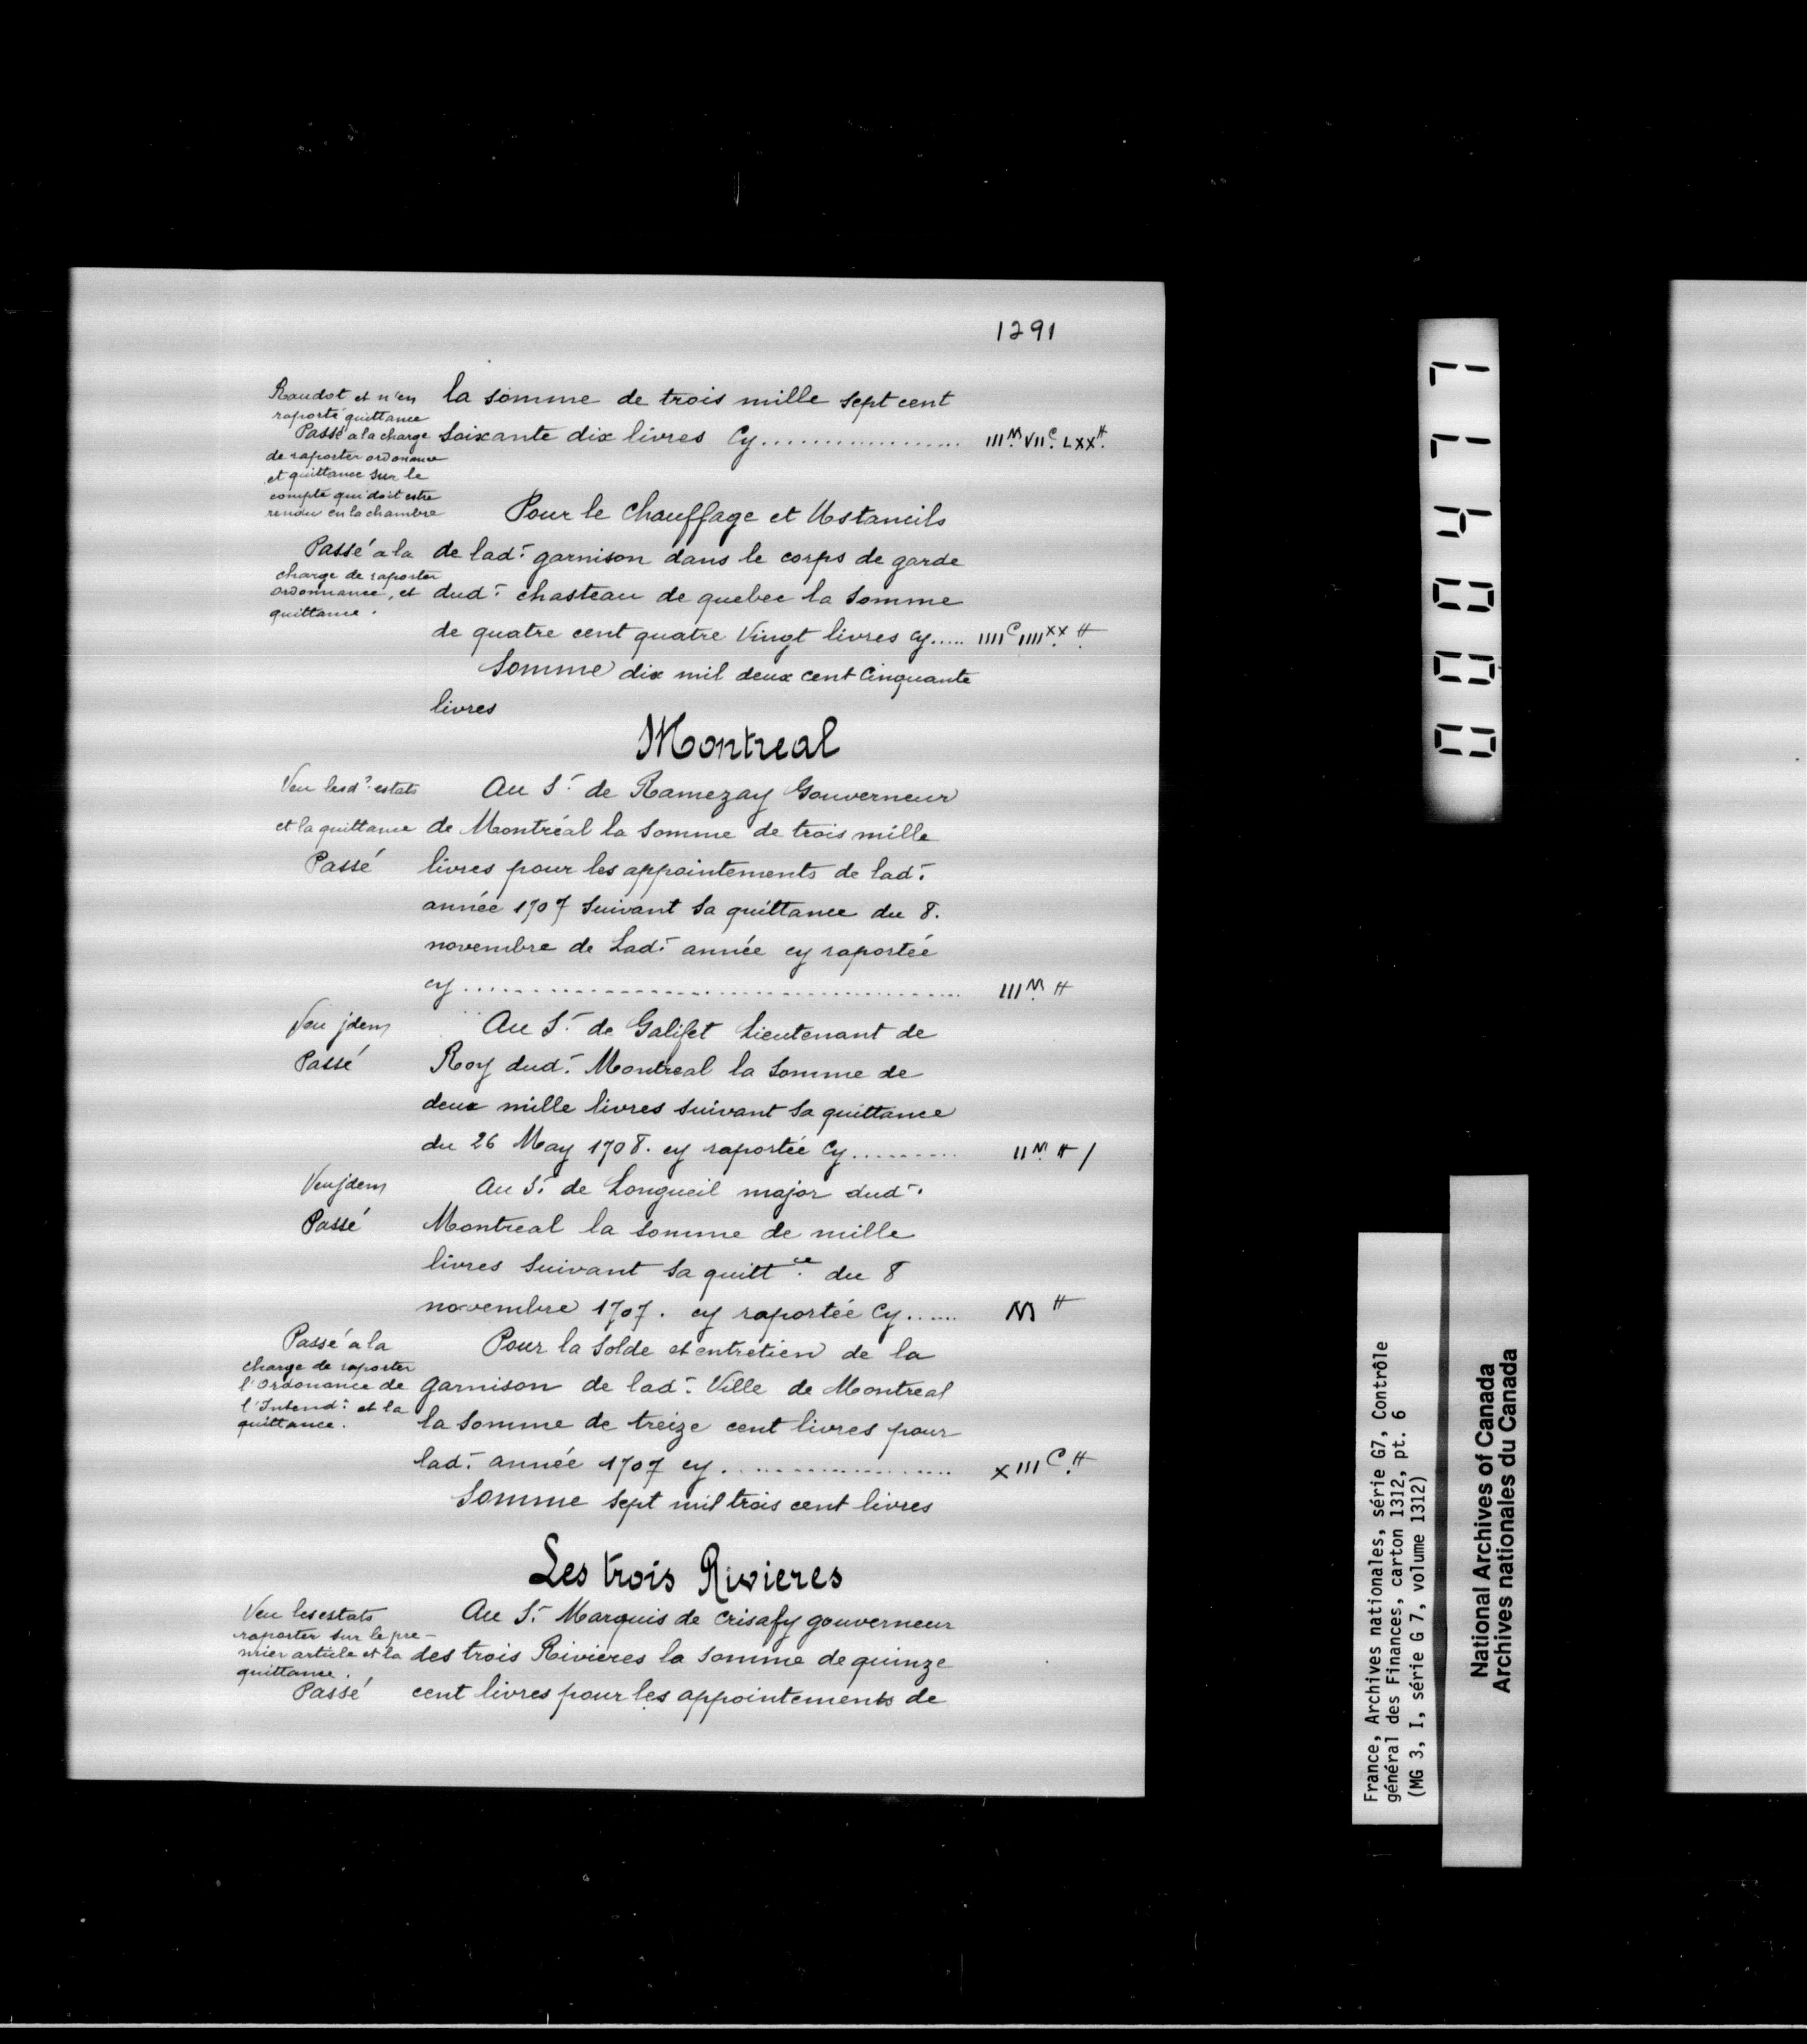 1291
Raudot et n'en
raporté quittance
Passé a la charge
de raporter ordonance
et quittance sur le
compte qui doit estre
rendu en la chambre
la somme de trois mille sept cent
soixante dix livres Cy.................. III M. VII C. LXX ₶.
Pour le Chauffage et Ustancils
Passé a la
charge de raporter
ordonnance, et
quittance.
de lad. garnison dans le corps de garde
dud. chasteau de quebec la somme
de quatre cent quatre Vingt livres cy..... IIII C IIII XX. ₶.
Somme dix mil deux cent Cinquante
livres
Montreal
Veu lesd. estats
et la quittance
Passé
Au Sr. de Ramezay Gouverneur
de Montréal la somme de trois mille
livres pour les appointements de lad.
année 1707 suivant sa quittance du 8.
novembre de Lad. année cy raportée
cy............................................. III M. ₶
Veu jdem
Passé
Au Sr. de Galifet Lieutenant de
Roy dud. Montreal la somme de
deux mille livres suivant sa quittance
du 26 May 1708. cy raportée Cy.......... II M. ₶ /
Veu jdem
Passé
Au Sr. de Longueil major dud.
Montreal la somme de mille
livres suivant sa quitt ce. du 8
novembre 1707. cy raportée Cy...... M ₶
Passé a la
charge de raporter
l'Ordonance de
l'Intend. et la
quittance.
Pour la solde et entretien de la
garnison de lad. Ville de Montreal
la somme de treize cent livres pour
lad. année 1707 cy..................... XIII C. ₶
Somme sept mil trois cent livres
Les trois Rivieres
Veu les estats
raporter sur le pre-
mier article et la
quittance.
Passé
Au Sr. Marquis de Crisafy gouverneur
des trois Rivieres la somme de quinze
cent livres pour les appointements de
004177
France, Archives nationales, série G7, Contrôle
général des Finances, carton 1312, pt. 6
(MG 3, I, série G 7, volume 1312)
National Archives of Canada
Archives nationales du Canada